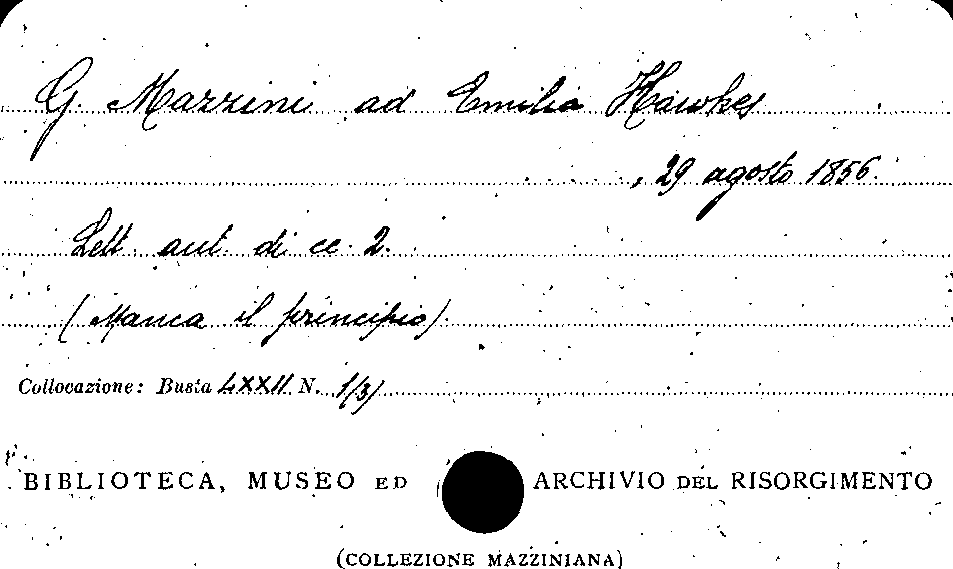 G. Mazzini ad Emilia Hawkes
, 29 agosto 1856.
Lett. aut. di cc. 2.
(Manca il principio).
Collocazione: Busta LXXII N. 1(3)
BIBLIOTECA, MUSEO ED ARCHIVIO DEL RISORGIMENTO
(COLLEZIONE MAZZINIANA)